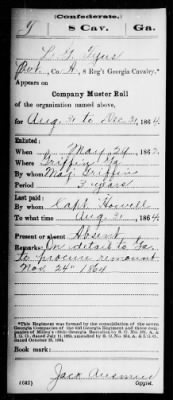 (Confederate.)
8 Cav. Ga.
Pvt, Co. A, 8 Reg't Georgia Cavalry.*
Appears on
Company Muster Roll
of the organization named above,
for Aug 31 to Dec 31, 1864.
Enlisted:
When May 24, 1862.
Where Griffin Ga
By whom Maj Griffin
Period 3 years
Last paid:
By whom Capt Howell
To what time Aug 31, 1864.
Present or absent Absent
Remarks: On detail to Ga.
to procure remount
Nov 24" 1864
*This Regiment was formed by the consolidation of the seven
Book mark:
(642)
Copyist.